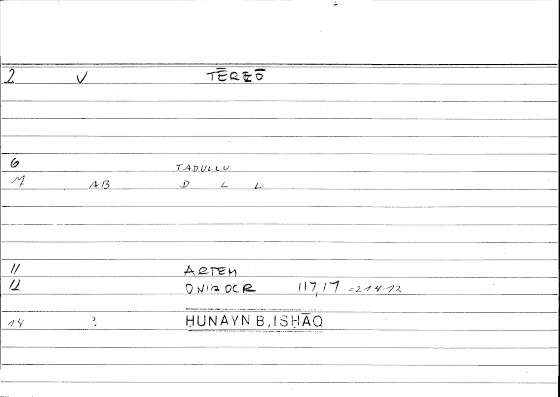 2 V TĒREŌ
6 TADULLU
7 AB D L L
11 ARTEM
12 ONIROCR 117,17 =214.12
14 ? HUNAYN B. ISHĀQ